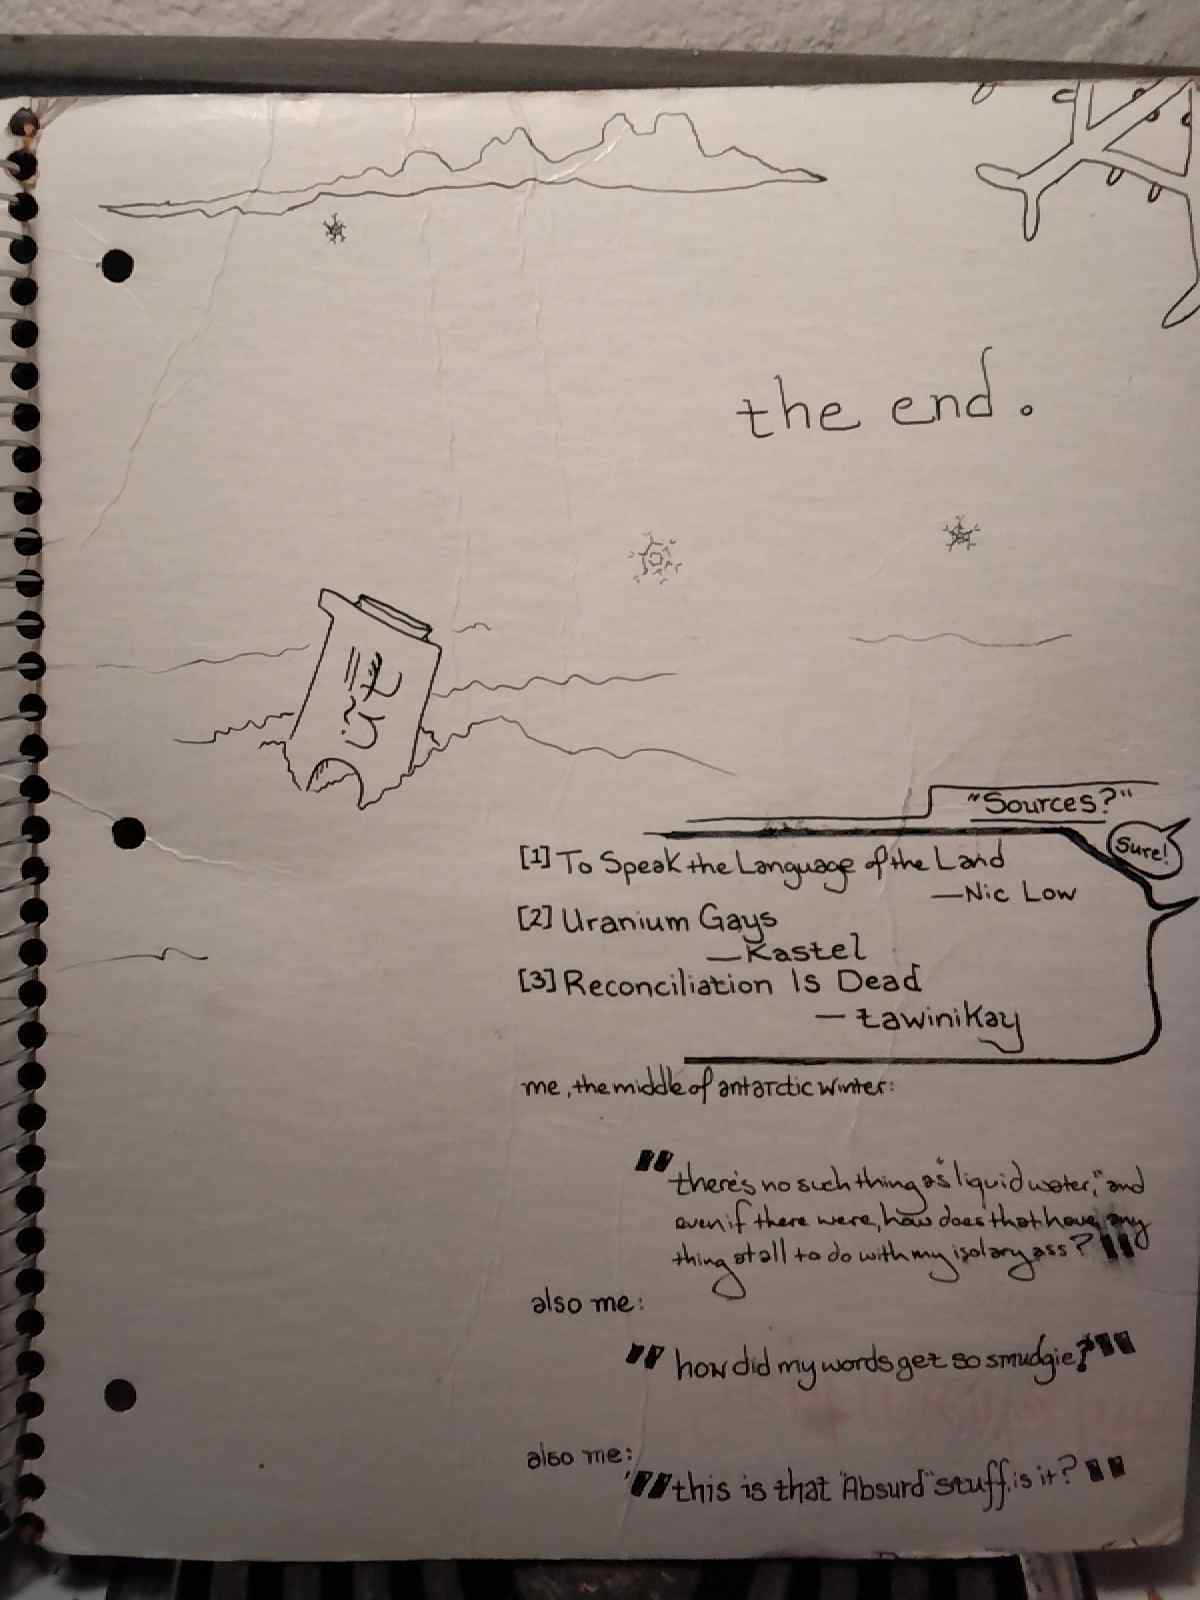 the end.
"Sources?"
Sure!
[1] To Speak the Language of the Land
—Nic Low
[2] Uranium Gays
—Kastel
[3] Reconciliation Is Dead
— tawinikay
me, the middle of antarctic winter:
"there's no such thing as "liquid water," and
even if there were, how does that have any
thing at all to do with my isolary ass?"
also me:
"how did my words get so smudgie?"
also me:
"this is that "Absurd" stuff, is it?"